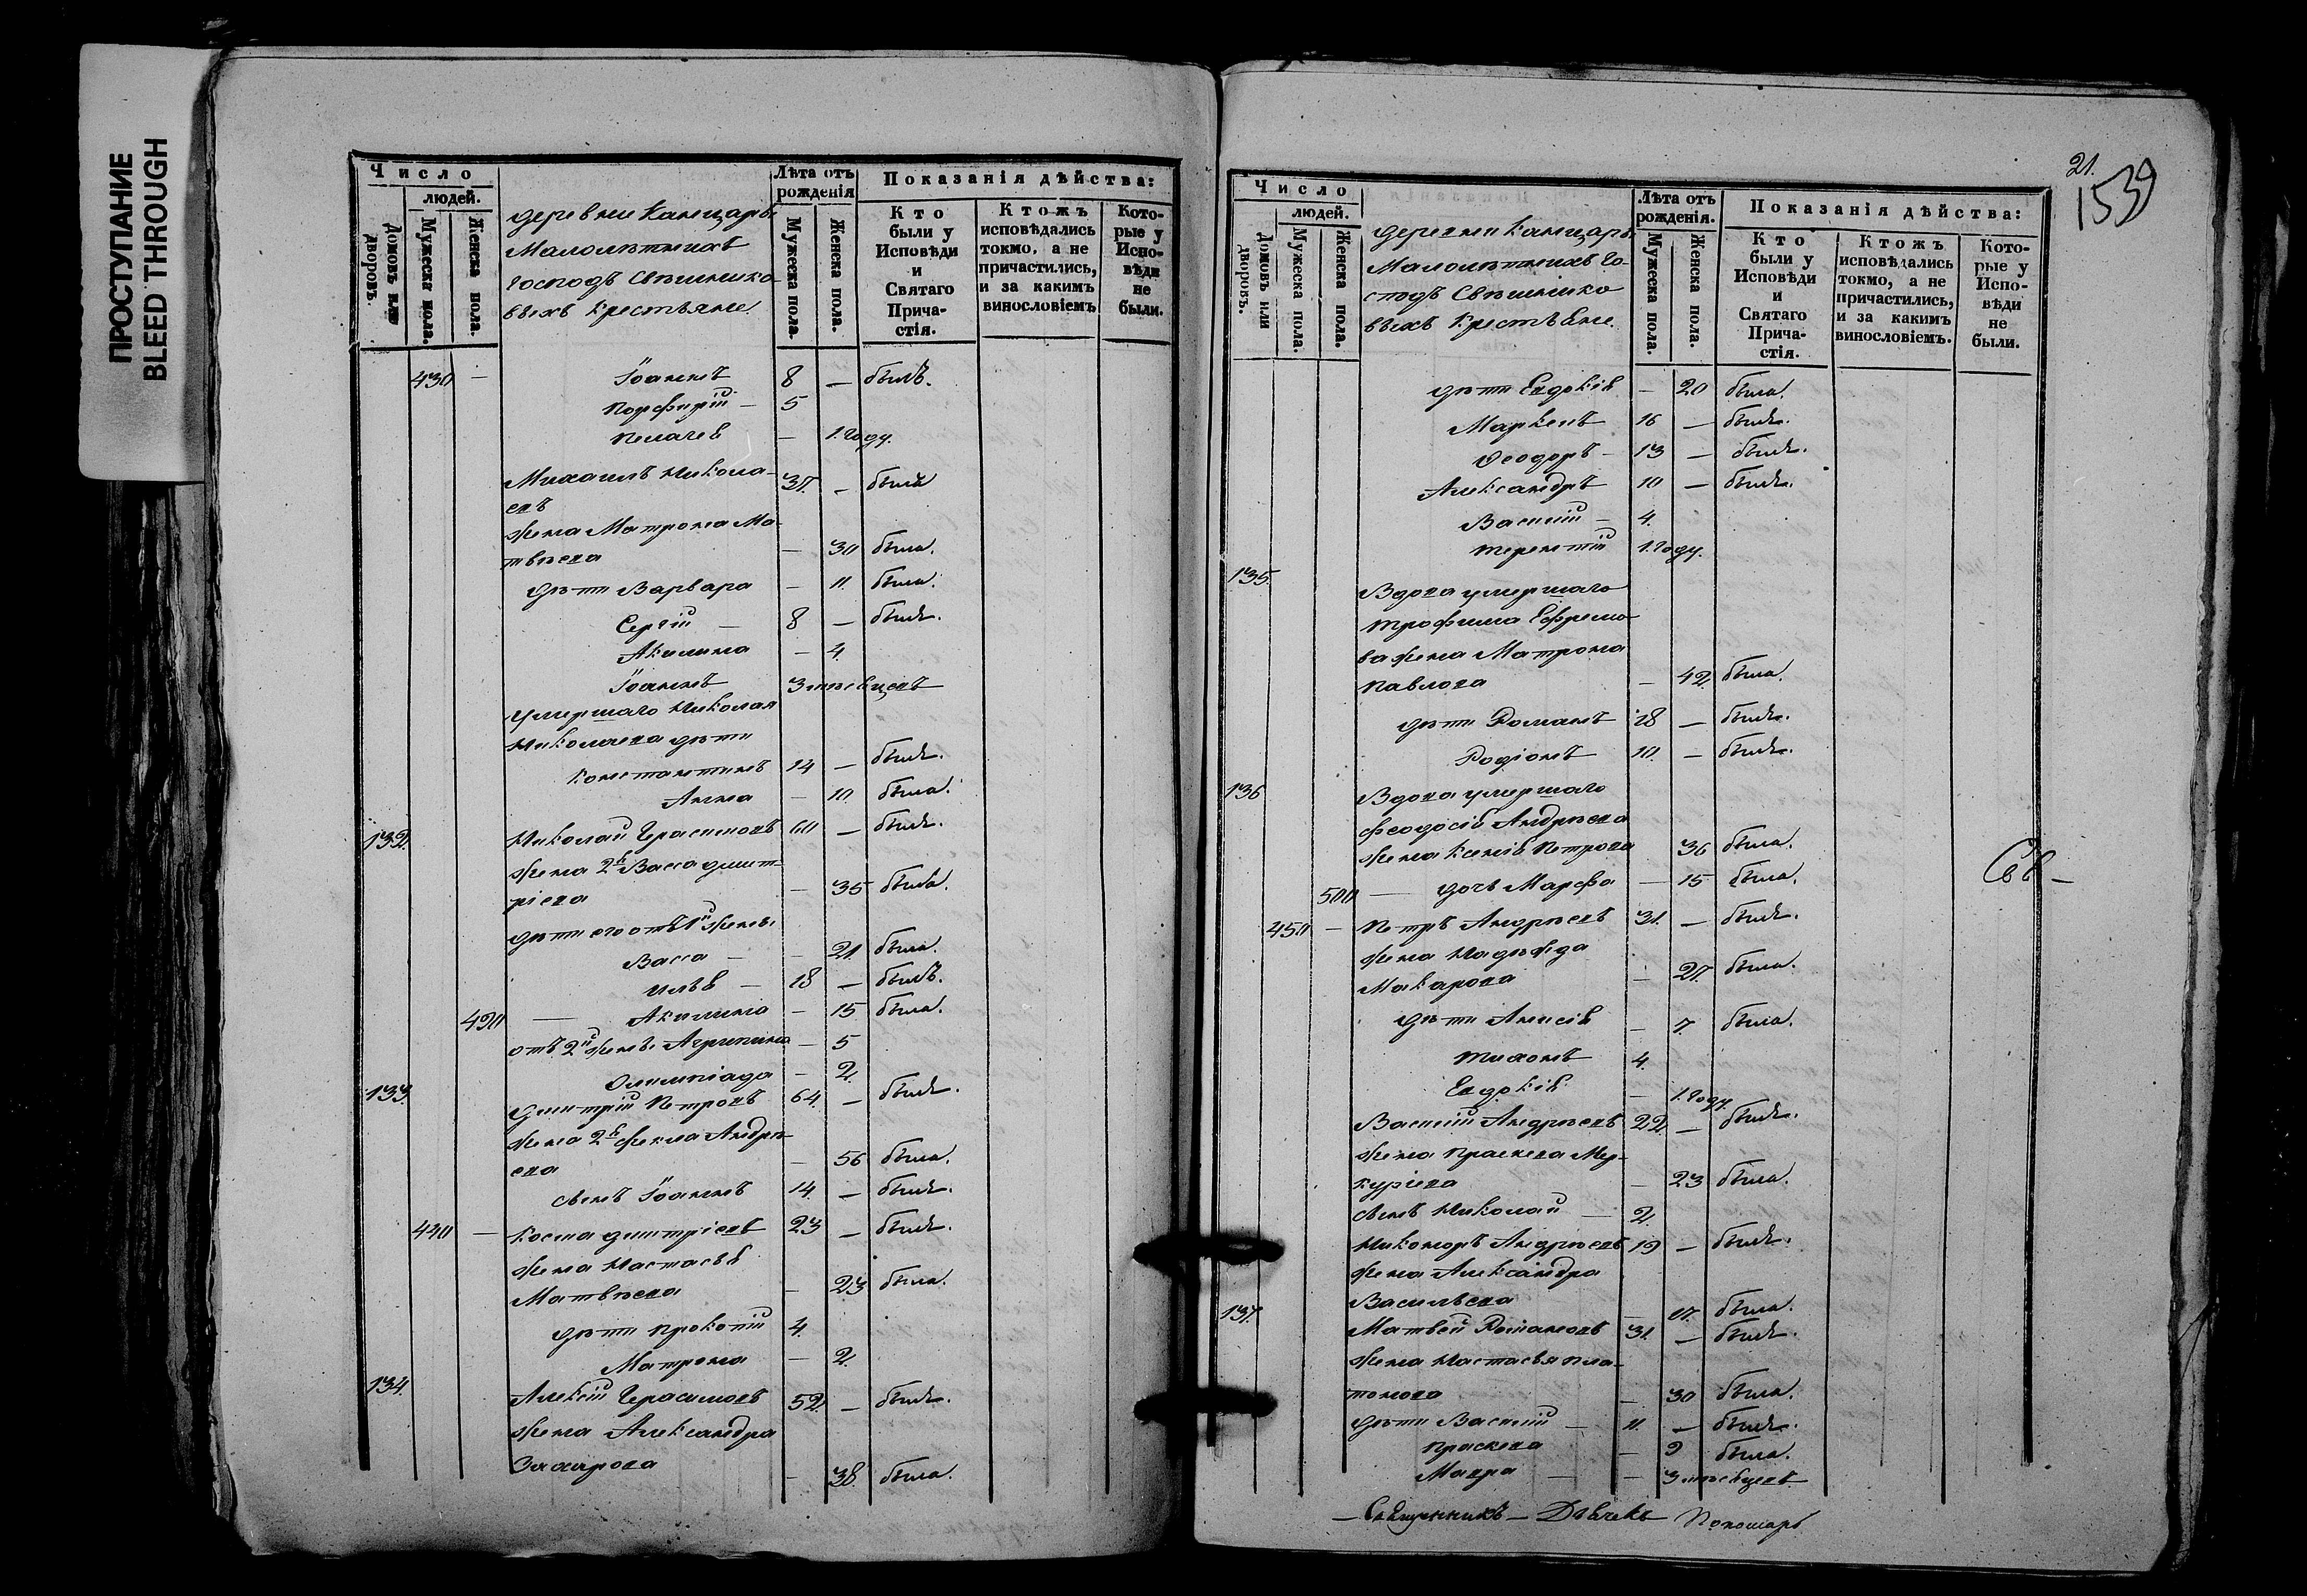 ПРОСТУПАНИЕ
BLEED THROUGH
Число
людей.
Домовъ или дворовъ.
Мужеска пола.
Женска пола.
деревни Канищевъ
Малолѣтныхъ
господъ Свѣшнико-
выхъ крестьяне.
Лѣта отъ рожденія
Мужеска пола.
Женска пола.
Показанія дѣйства:
Кто были у Исповѣди и Святаго Прича-стія.
Ктожъ исповѣдались токмо, а не причастились, и за какимъ винословіемъ
Кото-рые у Испо-вѣди не были.
430 — Іоаннъ 8 — былъ.
Порфирій — 5
Пелагея — 1. году.
Михаилъ Никола- 37. — былъ
евъ
жена Матрона Ма-
твѣева — 30 была.
дѣти Варвара — 11. была.
Сергій — 8 — былъ.
Акилина — 4.
Іоаннъ 3 мѣсяцевъ
Умершаго Николая
Николаева дѣти
Константинъ 14 — былъ.
Анна — 10. была.
132. Николай Герасимовъ 60 — былъ.
жена 2я Васса Дмит-
ріева — 35 была.
дѣти его отъ 1й жены
Васса — — 21. была.
Илья — 18 — былъ.
490 — Акилина — 15 была.
отъ 2й жены Агрипина — 5
Олимпіада — 2.
133. Димитрій Петровъ 64. — былъ.
жена 2я Фекла Андрѣ-
ева — 56 была.
сынъ Іоаннъ 14. — былъ.
440 — Косма Димитріевъ 23 — былъ.
жена Настасья
Матвѣева — 23 была.
дѣти Прокопій 4.
Матрона — 2.
134. Алексій Герасимовъ 52. — былъ.
жена Александра
Захарова — 38. была.
21.
1539
Число
людей.
Домовъ или дворовъ.
Мужеска пола.
Женска пола.
деревни Канищевъ
Малолѣтныхъ го-
сподъ Свѣшнико
выхъ крестьяне.
Лѣта отъ рожденія.
Мужеска пола.
Женска пола.
Показанія дѣйства:
Кто были у Исповѣди и Святаго Прича-стія.
Ктожъ исповѣдались токмо, а не причастились, и за какимъ винословіемъ.
Кото-рые у Испо-вѣди не были.
дѣти Евдокія — 20 была.
Маркелъ 16 — былъ.
Ѳеодоръ — 13 — былъ.
Александръ 10 — былъ.
Василій — 4.
Терентій 1. году.
135. Вдова умершаго
Трофима Ефремо
ва жена Матрона
Павлова — 42. была.
дѣти Романъ 18 — былъ.
Родіонъ 10. — былъ.
136 Вдова умершаго
Феодосія Андрѣева
жена Ксенія Петрова 36 была.
500 — дочь Марфа — 15 была.
450 — Петръ Андрѣевъ 31. — былъ.
жена Надѣжда
Макарова — 27. была.
дѣти Анисія — 7. была.
Тихонъ 4.
Евдокія — 1. году.
Василій Андрѣевъ 22. — былъ.
жена Праскева Мер-
куріева — 23 была.
сынъ Николай — 2.
Никоноръ Андрѣевъ 19 — былъ.
жена Александра
Васильева — 17. была.
137. Матвей Романовъ 31. — былъ.
жена Настасья Пла-
тонова — 30 была.
дѣти Василій — 11. — былъ.
Праскева — 9 была.
Мавра — — 3 мѣсяцевъ.
Свя —
— Священникъ — Дьячекъ Пономарь